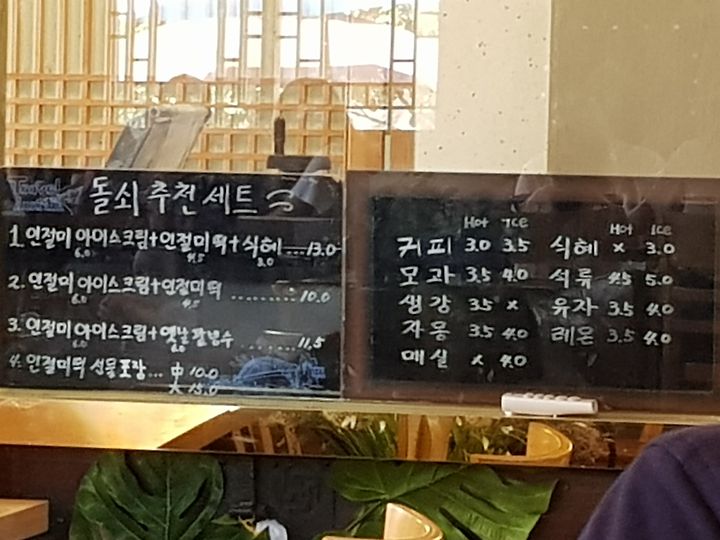 돌쇠 추천 세트
1. 인절미 아이스크림 + 인절미 떡 + 식혜 .... 13.0
6.0 4.5 3.0
2. 인절미 아이스크림 + 인절미 떡 ......... 10.0
6.0 4.5
3. 인절미 아이스크림 + 옛날 팥빙수 ........ 11.5
6.0
4. 인절미떡 선물포장 ... 中 10.0
大 15.0
Hot ICE
커피 3.0 3.5
모과 3.5 4.0
생강 3.5 x
자몽 3.5 4.0
매실 x 4.0
Hot ICE
식혜 x 3.0
석류 4.5 5.0
유자 3.5 4.0
레몬 3.5 4.0